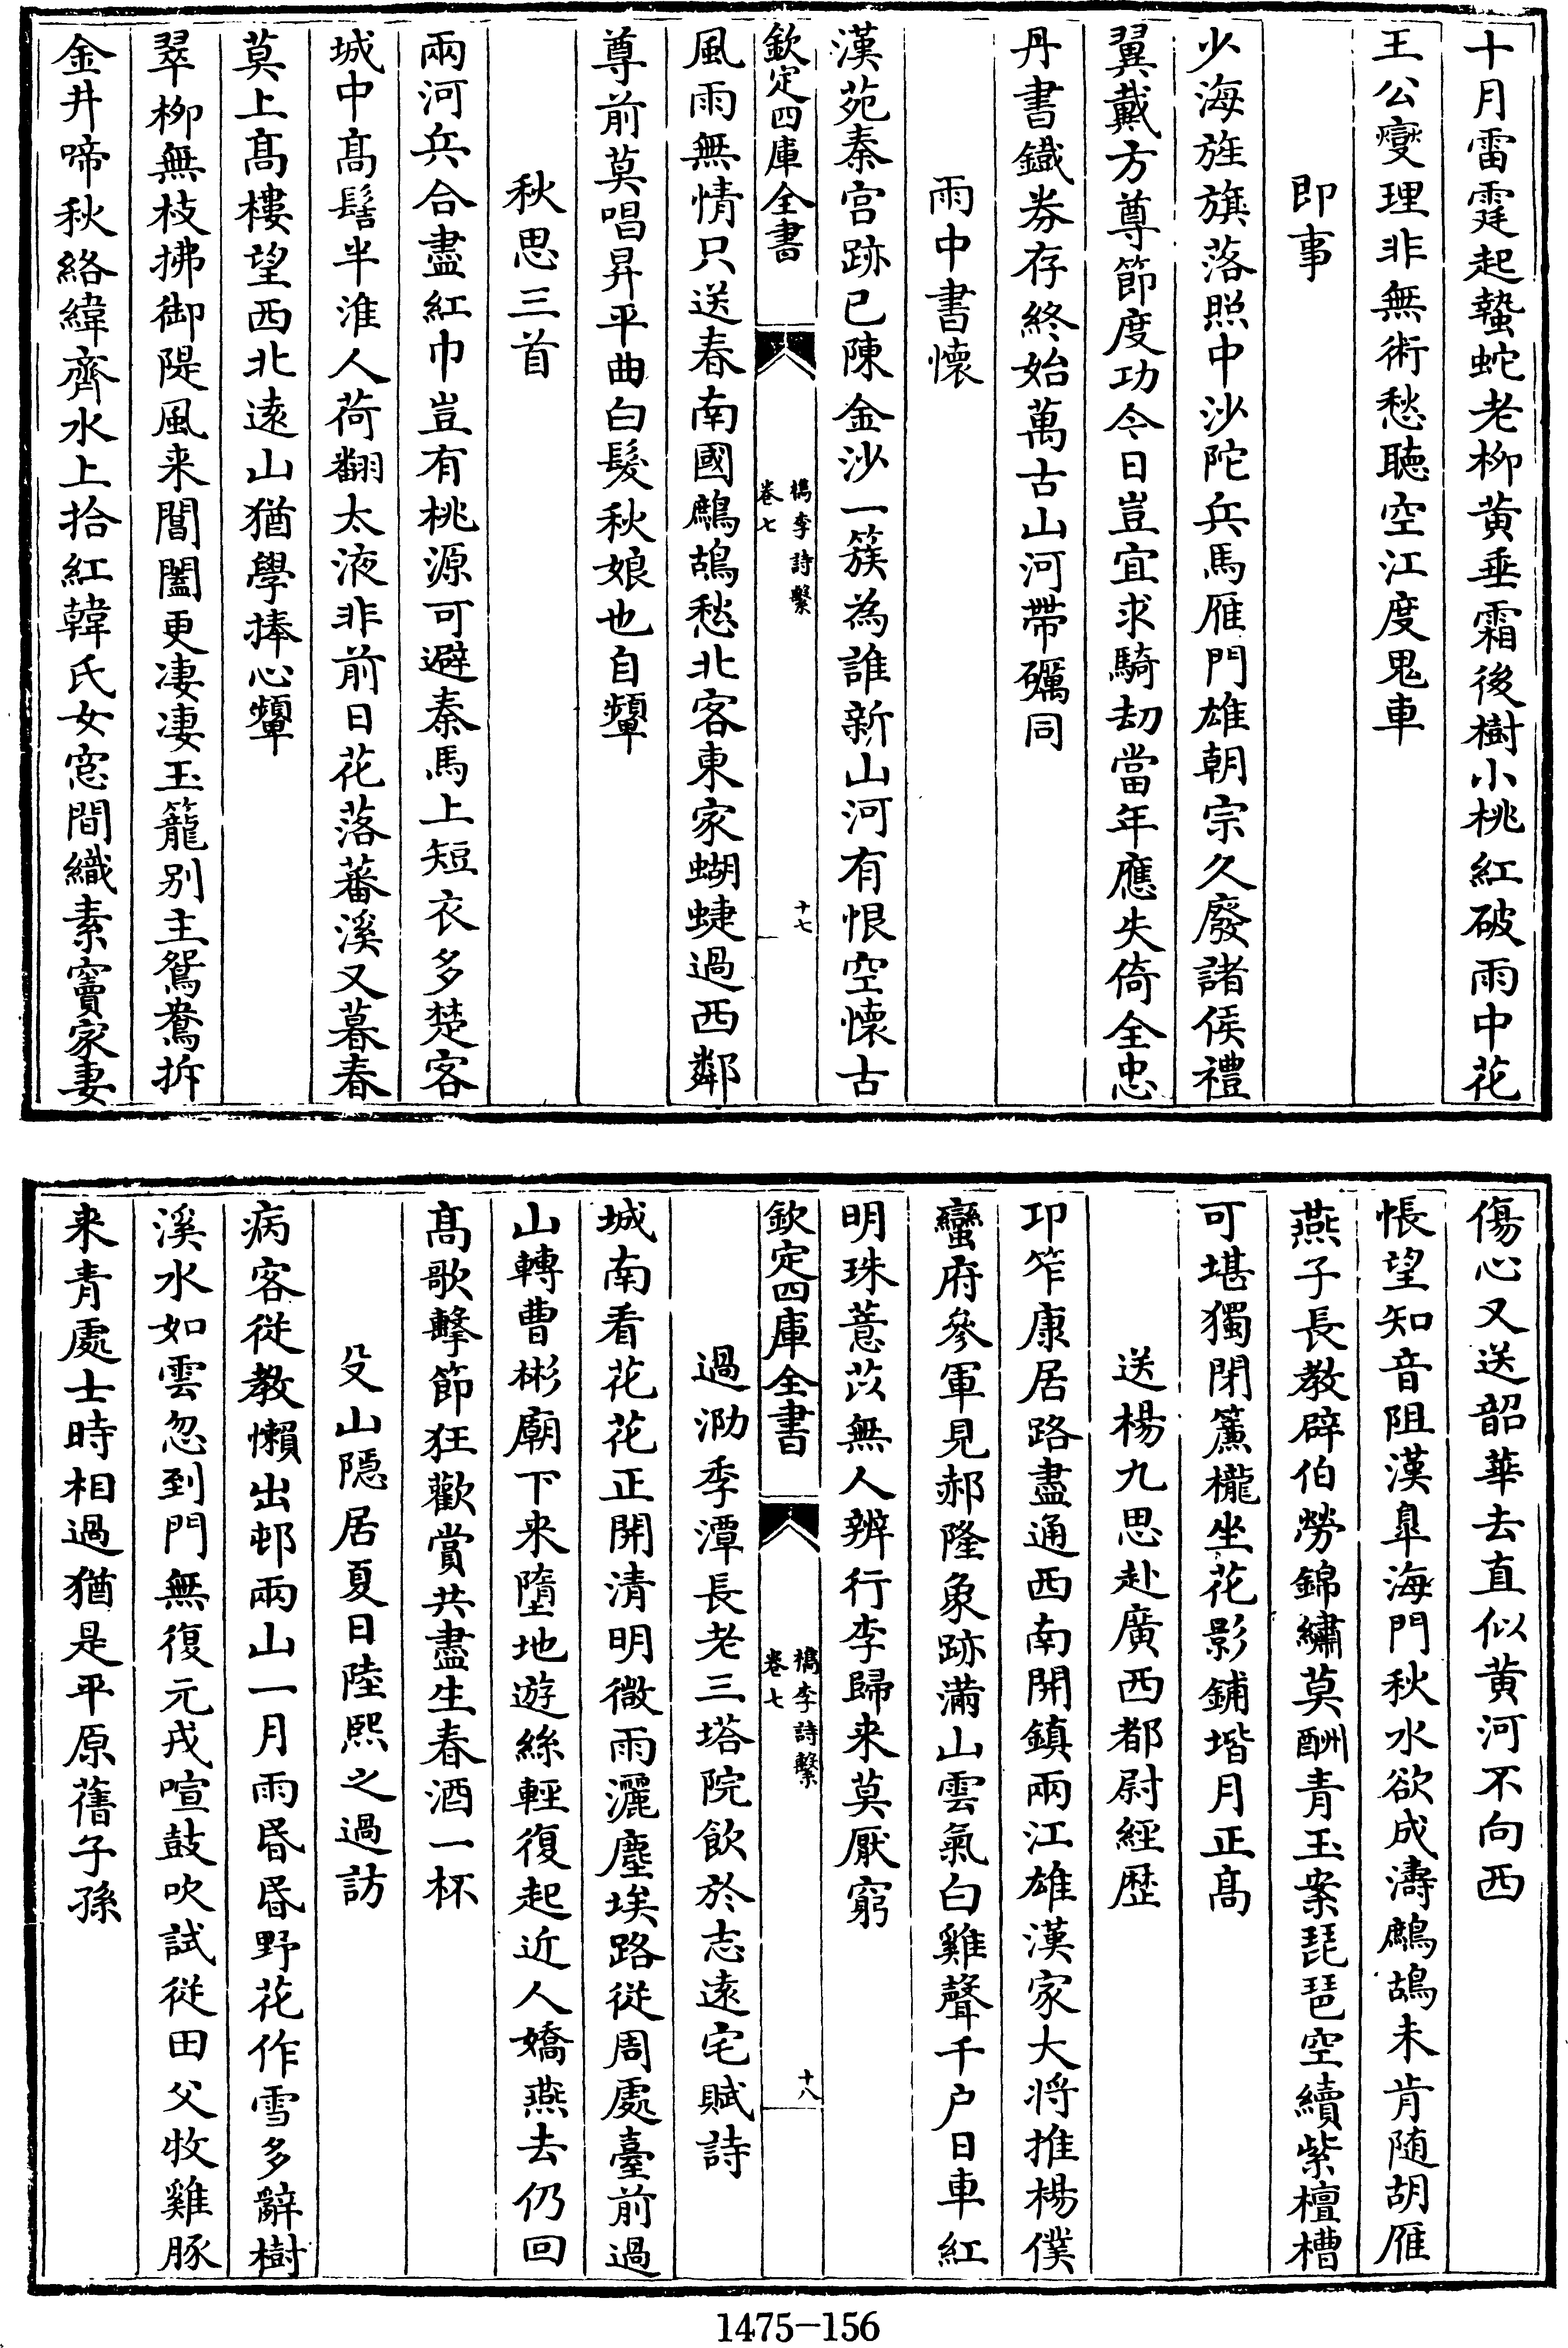 十月雷霆起蟄蛇老柳黄垂霜後樹小桃紅破雨中花
王公燮理非無術愁聽空江度鬼車
即事
少海旌旗落照中沙陀兵馬雁門雄朝宗久廢諸侯禮
翼戴方尊節度功今日豈宜求騎劫當年應失倚全忠
丹書鐵券存終始萬古山河帶礪同
雨中書懷
漢苑秦宫跡已陳金沙一簇為誰新山河有恨空懷古
欽定四庫全書
檇李詩繫
卷七
十七
風雨無情只送春南國鷓鴣愁北客東家蝴蜨過西鄰
尊前莫唱昇平曲白髮秋娘也自顰
秋思三首
兩河兵合盡紅巾豈有桃源可避秦馬上短衣多楚客
城中髙髻半淮人荷翻太液非前日花落蕃溪又暮春
莫上髙樓望西北遠山猶學捧心顰
翠柳無枝拂御隄風来閶闔更凄凄玉籠别主鴛鴦拆
金井啼秋絡緯齊水上拾紅韓氏女窓間織素竇家妻
傷心又送韶華去直似黄河不向西
悵望知音阻漢臯海門秋水欲成濤鷓鴣未肯随胡雁
燕子長教辟伯勞錦繡莫酬青玉案琵琶空續紫檀槽
可堪獨閉簾櫳坐花影鋪堦月正髙
送楊九思赴廣西都尉經歴
卭笮康居路盡通西南開鎮兩江雄漢家大將推楊僕
蠻府參軍見郝隆象跡滿山雲氣白雞聲千户日車紅
明珠薏苡無人辨行李歸来莫厭窮
欽定四庫全書
檇李詩繫
卷七
十八
過泐季潭長老三塔院飲於志遠宅賦詩
城南看花花正開清明微雨灑塵埃路從周處臺前過
山轉曹彬廟下来墮地遊絲輕復起近人嬌燕去仍回
髙歌擊節狂歡賞共盡生春酒一杯
殳山隠居夏日陸熙之過訪
病客從教懶出邨兩山一月雨昬昬野花作雪多辭樹
溪水如雲忽到門無復元戎喧鼓吹試從田父牧雞豚
来青處士時相過猶是平原舊子孫
1475-156